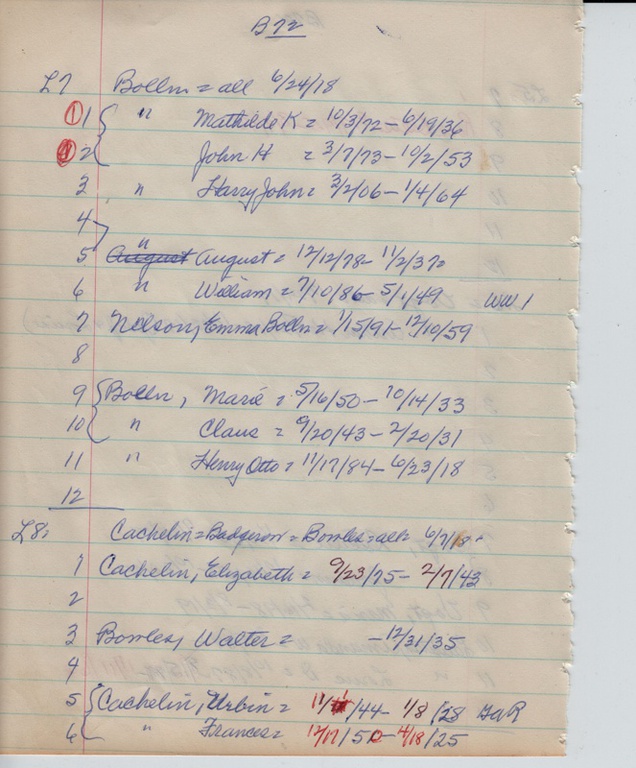 B72
L7 Bolln = all 6/24/18
1 1 { " Mathilde K = 10/3/72 - 6/19/36
2 { John H = 3/7/73 - 10/2/53
3 " Harry John = 3/2/06 - 1/4/64
4
5 August " August = 12/12/78 - 11/2/37
6 " William = 7/10/86 - 5/1/49 WW1
7 Nelson, Emma Bolln = 1/15/91 - 12/10/59
8
9 { Bolln, Marie = 5/16/50 - 10/14/33
10 { " Claus = 9/20/43 - 2/20/31
11 " Henry Otto = 11/17/84 - 6/23/18
12
L8, Cachelin = Badgerow = Bowles = all 6/7/18
1 Cachelin, Elizabeth = 9/23/75 - 2/7/43
2
3 Bowles, Walter = - 12/31/35
4
5 { Cachelin, Urbin = 11/ /44 - 1/8/28 GaR
6 { " Frances = 12/17/50 - 4/18/25